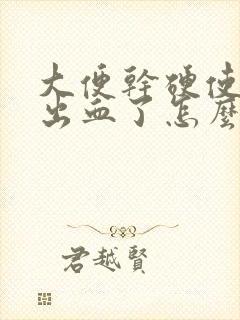 大便幹硬使
出血了怎麼
君越賢